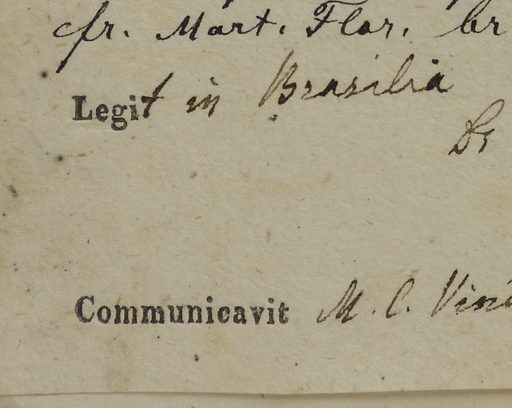 cfr. Mart. Flor. br
Legit in Brasilia
Communicavit M. C. Vin